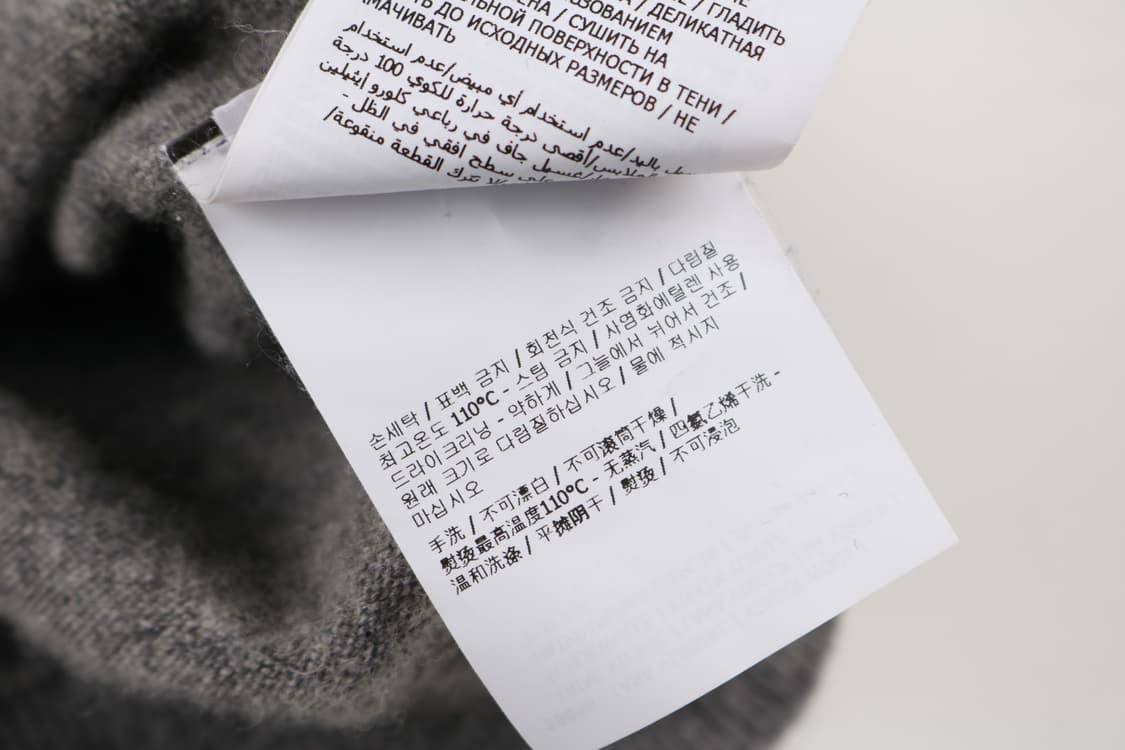 / ГЛАДИТЬ
/ ДЕЛИКАТНАЯ
/ СУШИТЬ НА
ПОВЕРХНОСТИ В ТЕНИ /
ДО ИСХОДНЫХ РАЗМЕРОВ / НЕ
استخدام أي مبيض/عدم استخدام
باليد/عدم
أقصى درجة حرارة للكوي 100 درجة
جاف في رباعي كلورو إيثيلين
سطح أفقي في الظل -
تترك القطعة منقوعة/
손세탁 / 표백 금지 / 회전식 건조 금지 / 다림질
최고온도 110°C - 스팀 금지 / 사염화에틸렌 사용
드라이크리닝 - 약하게 / 그늘에서 뉘어서 건조 /
원래 크기로 다림질하십시오 / 물에 적시지
마십시오
手洗 / 不可漂白 / 不可滚筒干燥 /
熨烫最高温度110°C - 无蒸汽 / 四氯乙烯干洗 -
温和洗涤 / 平摊阴干 / 熨烫 / 不可浸泡